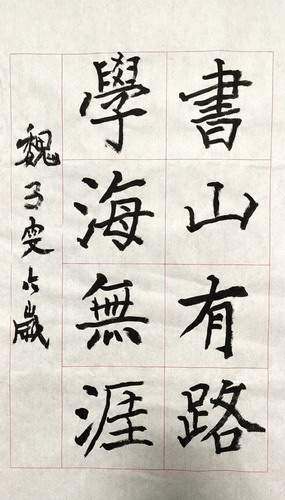 書山有路
學海無涯
魏子雯歲